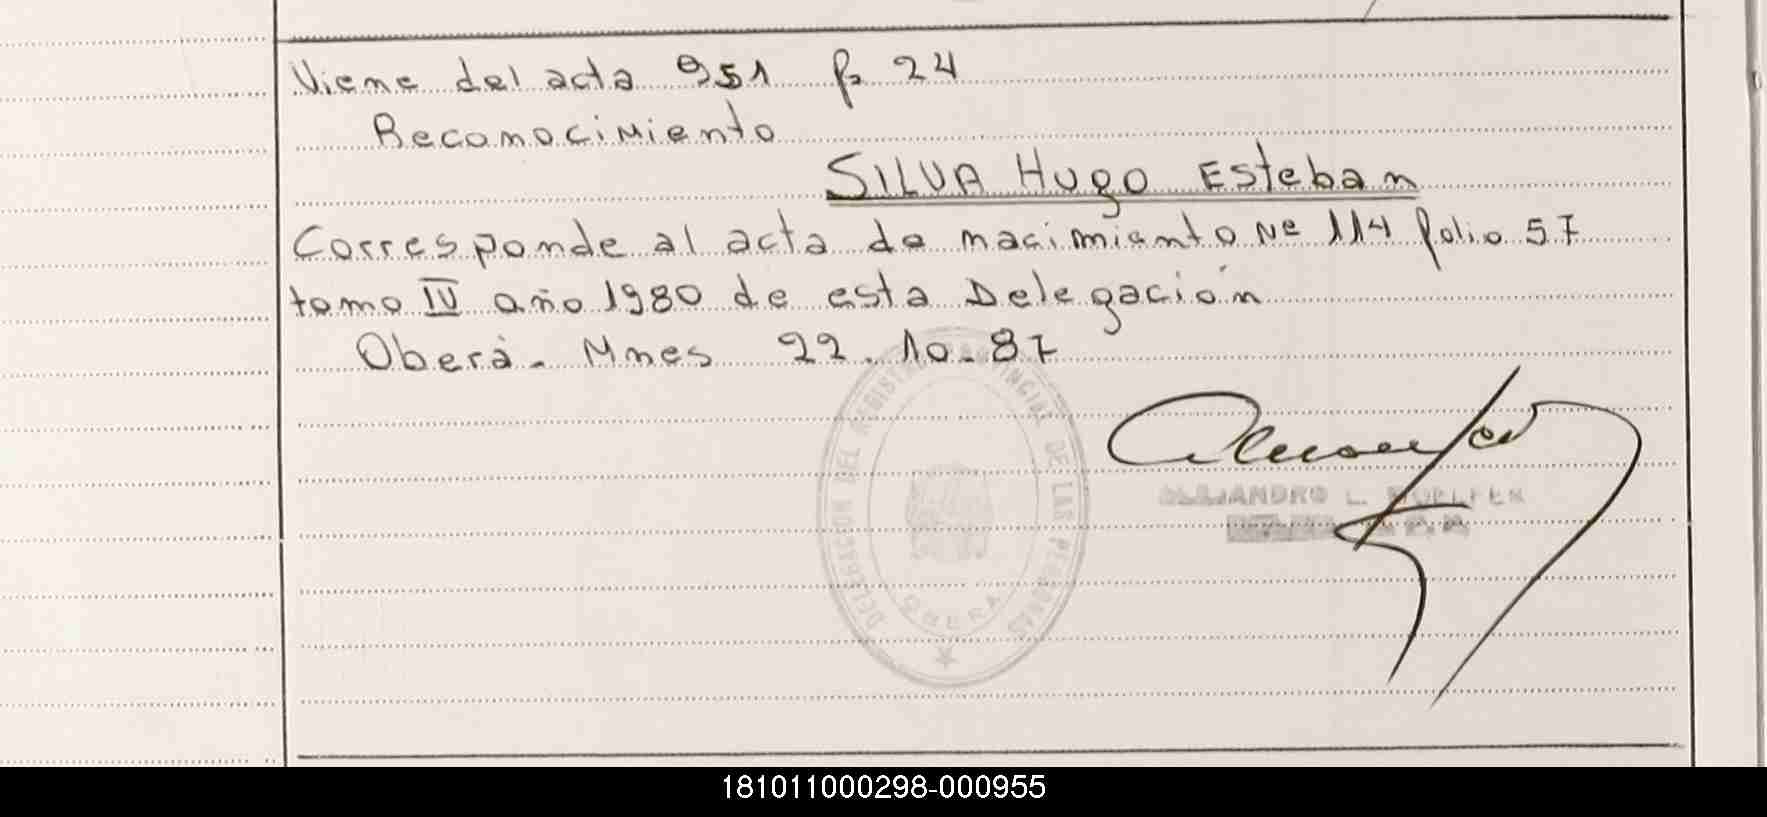 Viene del acta 951 fº 24
Reconocimiento
SILVA Hugo Esteban
Corresponde al acta de nacimiento Nº 114 folio 57
tomo IV año 1980 de esta Delegación
Oberá - Mnes 22.10.87
DELEGACION DEL REGISTRO PROVINCIAL DE LAS PERSONAS
OBERA
ALEJANDRO L.
181011000298-000955